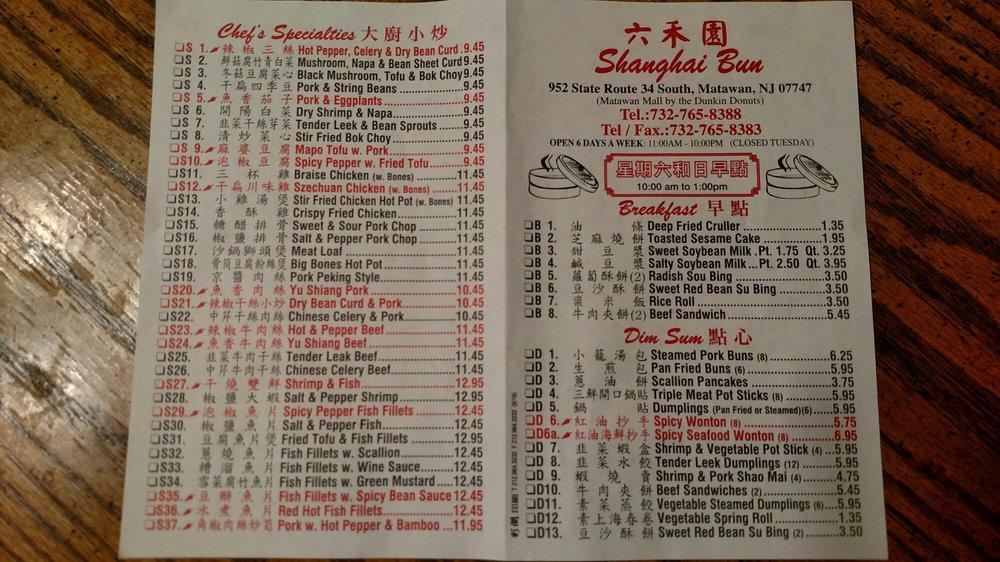 Chef's Specialties 大廚小炒
S 1. 辣椒三絲 Hot Pepper, Celery & Dry Bean Curd .9.45
S 2. 鮮菇腐竹青白菜 Mushroom, Napa & Bean Sheet Curd 9.45
S 3. 冬菇豆腐菜心 Black Mushroom, Tofu & Bok Choy 9.45
S 4. 干扁四季豆 Pork & String Beans 9.45
S 5. 魚香茄子 Pork & Eggplants 9.45
S 6. 開陽白菜 Dry Shrimp & Napa 9.45
S 7. 韭菜干絲芽菜 Tender Leek & Bean Sprouts 9.45
S 8. 清炒菜心 Stir Fried Bok Choy 9.45
S 9. 麻婆豆腐 Mapo Tofu w. Pork 9.45
S10. 泡椒豆腐 Spicy Pepper w. Fried Tofu 9.45
S11. 三杯雞 Braise Chicken (w. Bones) 11.45
S12. 干扁川味雞 Szechuan Chicken (w. Bones) 11.45
S13. 小雞湯煲 Stir Fried Chicken Hot Pot (w. Bones) 11.45
S14. 香酥雞 Crispy Fried Chicken 11.45
S15. 糖醋排骨 Sweet & Sour Pork Chop 11.45
S16. 椒鹽排骨 Salt & Pepper Pork Chop 11.45
S17. 沙鍋獅頭煲 Meat Loaf 11.45
S18. 骨筒豆腐粉絲煲 Big Bones Hot Pot 11.45
S19. 京醬肉絲 Pork Peking Style 11.45
S20. 魚香肉絲 Yu Shiang Pork 10.45
S21. 辣椒干絲小炒 Dry Bean Curd & Pork 10.45
S22. 中芹干絲肉絲 Chinese Celery & Pork 10.45
S23. 辣椒牛肉絲 Hot & Pepper Beef 11.45
S24. 魚香牛肉絲 Yu Shiang Beef 11.45
S25. 韭菜牛肉干絲 Tender Leak Beef 11.45
S26. 中芹牛肉干絲 Chinese Celery Beef 11.45
S27. 干燒雙鮮 Shrimp & Fish 12.95
S28. 椒鹽大蝦 Salt & Pepper Shrimp 12.95
S29. 泡椒魚片 Spicy Pepper Fish Fillets 12.45
S30. 椒鹽魚片 Salt & Pepper Fish 12.45
S31. 豆腐魚片煲 Fried Tofu & Fish Fillets 12.95
S32. 蔥燒魚片 Fish Fillets w. Scallion 12.45
S33. 糟溜魚片 Fish Fillets w. Wine Sauce 12.45
S34. 雪菜腐竹魚片 Fish Fillets w. Green Mustard 12.45
S35. 豆瓣魚片 Fish Fillets w. Spicy Bean Sauce 12.45
S36. 水煮魚片 Red Hot Fish Fillets 12.45
S37. 角椒肉絲炒筍 Pork w. Hot Pepper & Bamboo ...11.95
六禾園
Shanghai Bun
952 State Route 34 South, Matawan, NJ 07747
(Matawan Mall by the Dunkin Donuts)
Tel.:732-765-8388
Tel / Fax.:732-765-8383
OPEN 6 DAYS A WEEK: 11:00AM - 10:00PM (CLOSED TUESDAY)
星期六和日早點
10:00 am to 1:00pm
Breakfast 早點
B 1. 油條 Deep Fried Cruller 1.35
B 2. 芝麻燒餅 Toasted Sesame Cake 1.95
B 3. 甜豆漿 Sweet Soybean Milk . Pt. 1.75 Qt. 3.25
B 4. 鹹豆漿 Salty Soybean Milk ... Pt. 2.50 Qt. 3.95
B 5. 蘿蔔酥餅(2) Radish Sou Bing 3.50
B 6. 豆沙酥餅 Sweet Red Bean Su Bing 3.50
B 7. 粢米飯 Rice Roll 3.50
B 8. 牛肉夾餅(2) Beef Sandwich 5.45
Dim Sum 點心
D 1. 小籠湯包 Steamed Pork Buns (8) 6.25
D 2. 生煎包 Pan Fried Buns (6) 5.95
D 3. 蔥油餅 Scallion Pancakes 3.75
D 4. 三鮮開口鍋貼 Triple Meat Pot Sticks (8) 5.95
D 5. 鍋貼 Dumplings (Pan Fried or Steamed)(6) 5.95
D 6. 紅油抄手 Spicy Wonton (8) 5.75
D6a. 紅油海鮮抄手 Spicy Seafood Wonton (8) 6.95
D 7. 韭菜蝦盒 Shrimp & Vegetable Pot Stick (4) ...5.95
D 8. 韭菜水餃 Tender Leek Dumplings (12) 5.95
D 9. 蝦燒賣 Shrimp & Pork Shao Mai (4) 4.75
D10. 牛肉夾餅 Beef Sandwiches (2) 5.45
D11. 素菜蒸餃 Vegetable Steamed Dumplings (6) 5.95
D12. 素上海春卷 Vegetable Spring Roll 1.35
D13. 豆沙酥餅 Sweet Red Bean Su Bing (2) 3.50